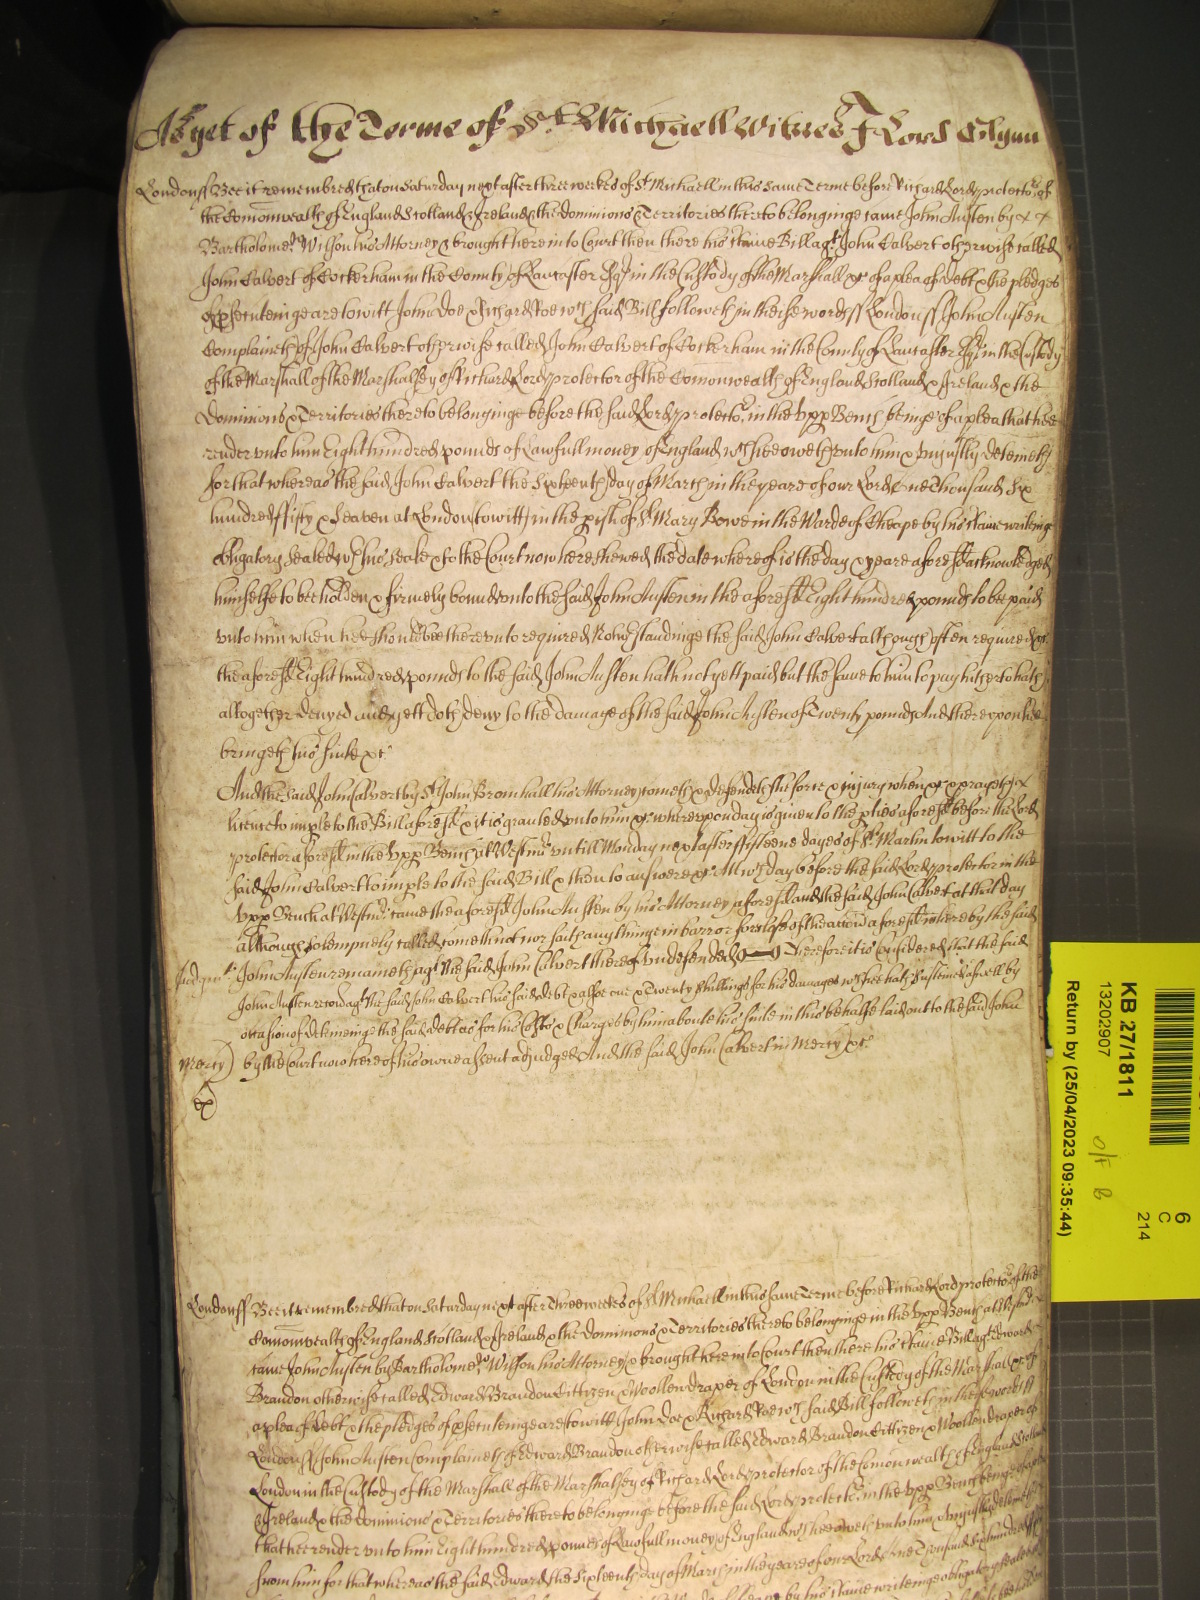 As yet of the Terme of St Michaell Witnes J Lord Glynn
London ss Bee it remembred that on Saturday next after three weekes of St Michaell in this same Terme before Richard Lord protector of
the Comonwealth of England Scotland & Ireland & the dominions & Territories thereto belonginge came John Austen by x x
Bartholomew Wilson his Attorney & brought here into Court then there his certaine Bill agt John Calvert otherwise called
John Calvert of Cockerham in the County of Lancaster Esqr in the Custody of the Marshall &c of a plea of debt & the pledges
of psecuteinge are towitt John Doe & Richard Roe wch said Bill followeth in theise words ss London ss John Austen
Complaineth of John Calvert otherwise called John Calvert of Cockerham in the County of Lancaster Esqr in the Custody
of the Marshall of the Marshalsey of Richard Lord protector of the Comonwealth of England Scotland & Ireland & the
Dominions & Territories thereto belonginge before the said Lord protector in the Upp Bench beinge of a plea that hee
render unto him Eight hundred pounds of lawfull money of England wch hee oweth unto him & unjustly deteineth
for that whereas the said John Calvert the Sixteenth day of March in the yeare of our Lord One Thousand Six
hundred fifty & Seaven at London towitt in the pish of St Mary Bowe in the Warde of Cheape by his certaine writeinge
obligatory Sealed wth his Seale & to the Court now here shewed the date whereof is the day & yeare aforesd acknowledged
himselfe to bee holden & firmely bound unto the said John Austen in the aforesd Eight hundred pounds to bee paid
unto him when hee should bee thereunto required Notwthstandinge the said John Calvert although often required &c
the aforesd Eight hundred pounds to the said John Austen hath not yett paid but the same to him to pay hitherto hath
altogether denyed and yett doth deny to the damage of the said John Austen of Twenty pounds And thereupon hee
bringeth his suite &c
And the said John Calvert by St John Bromhall his Attorney cometh & defendeth the force & injury when &c & prayeth x
licence to imple to the Bill aforesd & it is granted unto him &c whereupon day is given to the pties aforesd before the Lord
protector aforesd in the Upp Bench at Westmr untill Monday next after fifteene dayes of St Martin towitt to the
said John Calvert to imple to the said Bill & then to answere &c Att wch day before the said Lord protector in the
Upp Bench at Westmr came the aforesd John Austen by his Attorney aforesd and the said John Calvert at that day
although solempnely called cometh not nor saith any thinge in barr or forclose of the accon aforesd whereby the said
Judgmt John Austen remaineth agt the said John Calvert thereof undefended Therefore it is Considered that the said
John Austen recover agt the said John Calvert his said debt & alsoe one & Twenty shillings for his damages wch hee hath susteined aswell by
occasion of deteineinge the said debt as for his Costs & Charges by him aboute his suite in this behalfe laid out to the said John
Mercy by the Court now here of his owne assent adjudged And the said John Calvert in Mercy &c
London ss Bee it remembred that on Saturday next after Three weekes of St Michaell in this same Terme before Richard Lord protector of the
Comonwealth of England Scotland & Ireland & the Dominions & Territories thereto belonginge in the Upp Bench at Westmr
came John Austen by Bartholomew Wilson his Attorney & brought here into Court then there his certaine Bill agt Edward
Brandon otherwise called Edward Brandon Cittizen & Woollendraper of London in the Custody of the Marshall &c of
a plea of debt & the pledges of psecuteinge are towitt John Doe & Richard Roe wch said Bill followeth in these words ss
London ss John Austen Complaineth of Edward Brandon otherwise called Edward Brandon Cittizen & Woollendraper of
London in the Custody of the Marshall of the Marshalsey of Richard Lord protector of the Comonwealth of England Scotland
& Ireland & the dominions & Territories thereto belonginge before the said Lord protector in the Upp Bench beinge of a plea
that hee render unto him Eight hundred pounds of Lawfull money of England wch hee oweth unto him & unjustly deteineth
from him for that whereas the said Edward the Sixteenth day of March in the yeare of our Lord One Thousand Six hundred fifty
by his certaine writeinge obligatory sealed
KB 27/1811
13202907
Return by (25/04/2023 09:35:44)
6
C
214